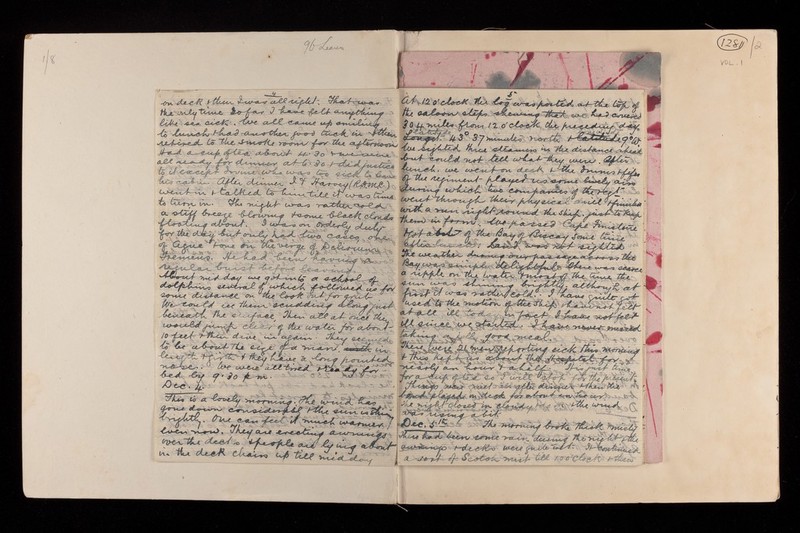 1/8
96 Leaves
1281/2
VOL. 1
4
on deck & then I was all right. That was
the only time so far I have felt anything
like sea sick. We all came up smiling
to lunch & had another good tuck in & then
retired to the smoke room for the afternoon
Had a cup of tea about 4.30 & we were
all ready for dinner at 6.30 & did justice
to it except Orme who was too sick to leave
his cabin. After dinner I & Harvey (RAMC)
went in & talked to him till it was time
to turn in. The night was rather cold
a stiff breeze blowing & some black clouds
floating about. I was on orderly duty
for the day but only had two cases, one
of Ague & one on the verge of Delirium
Tremens. He had been having a
regular burst before leaving.
About midday we got into a school of
dolphins several of which followed us for
some distance on the look out for grub
We could see them scudding along just
beneath the surface. Then all at once they
would jump clear of the water for about
10 feet & then dive in again. They seemed
to be about the size of a man in
length & girth & they have a long pointed
nose. We were all tired & ready for
bed by 9.30 pm
Dec. 4
This is a lovely morning. The wind has
gone down considerably & the sun is shining
brightly. One can feel it much warmer
even now. They are erecting awnings
over the decks & people are lying about
in the deck chairs up till midday
5
At 12 o'clock the log was posted at the top of
the saloon steps shewing that we had covered
304 miles from 12 o'clock the preceding day.
43° 37 minutes north & 9° W.
We sighted three steamers in the distance ahead
but could not tell what they were. After
lunch, we went on deck & the drums & fifes
of the regiment played us some lively airs
during which two companies of the regt
went through their physical drill & finished
with a run right round the ship, just to keep
them in form. We passed Cape Finisterre
& got out of the Bay of Biscay some time
after. Land was not sighted
The weather during our passage across the
Bay was simply delightful. There was scarce
a ripple on the water & most of the time the
sun was shining brightly although at
first it was rather cold. I have quite got
used to the motion of the ship & have not felt
at all ill today. In fact I have not felt
ill since we started. I have never missed
taking up a good meal.
There were 21 men reporting sick this morning
& this kept us about the hospital for
nearly an hour & a half.
after dinner & then the
band played on deck for about an hour
night closed in cloudy & the wind
was rising a bit
Dec. 5th The morning broke thick & misty
there had been some rain during the night & the
awnings & decks were quite wet. It continued
a sort of Scotch mist till 10 o'clock & then